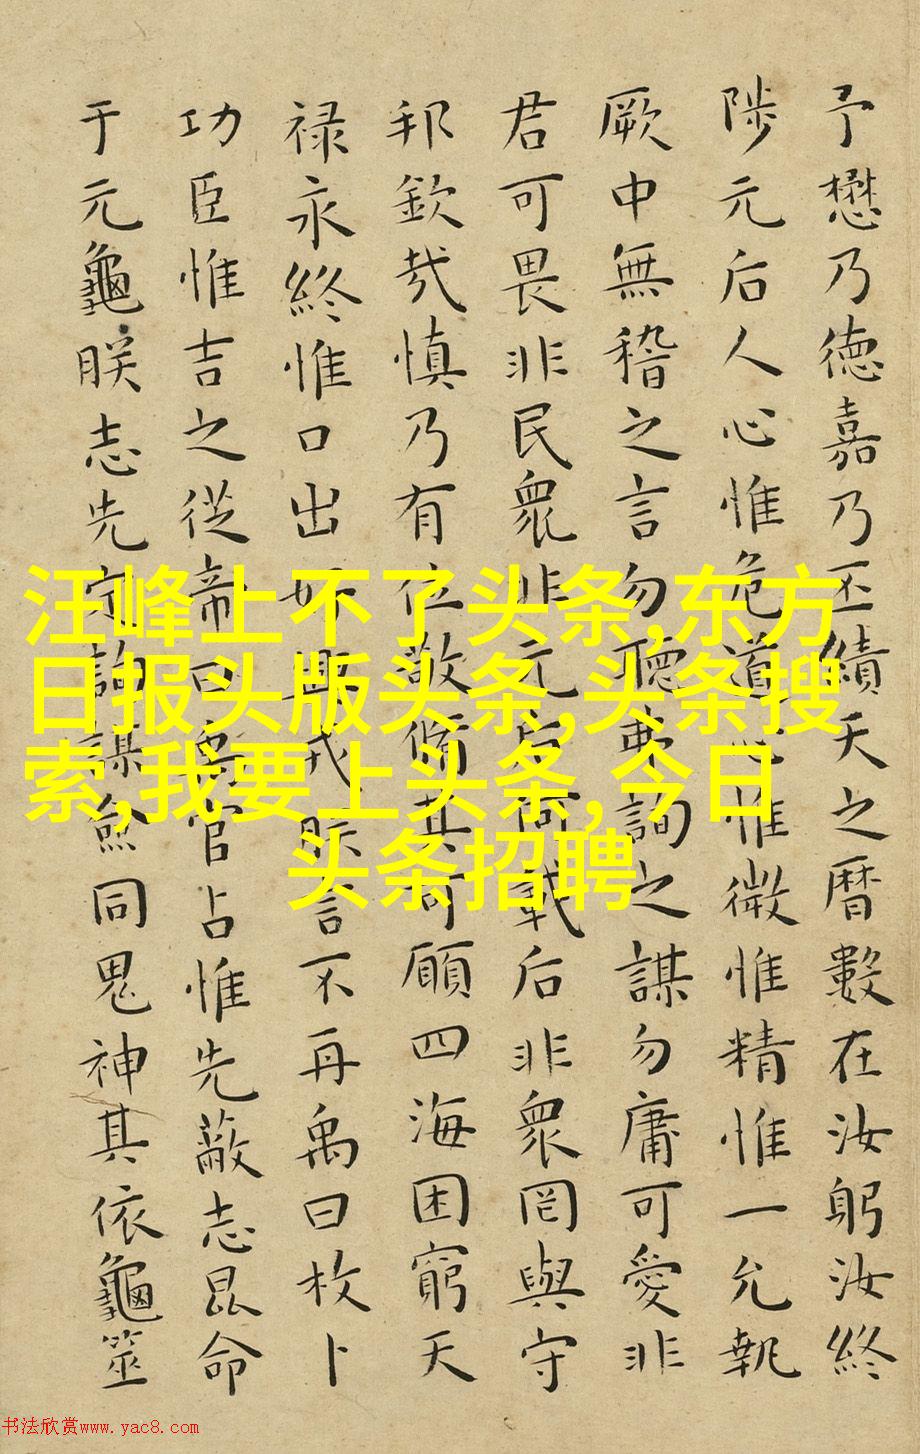 予懋乃德嘉乃丕績天之曆數在汝躬汝終
陟元后人心惟危道心惟微惟精惟一允執
厥中無稽之言勿聽弗詢之謀勿庸可愛非
君可畏非民衆非元后何戴后非衆罔與守
邦欽哉慎乃有位敬脩其可願四海困窮天
禄永終惟口出好興戎朕言不再禹曰枚卜
功臣惟吉之從帝曰禹官占惟先蔽志昆命
于元龜朕志先定詢謀僉同鬼神其依龜筮
汪峰上不了头条,东方
日报头版头条,头条搜
索,我要上头条,今日
头条招聘
书法欣赏www.yac8.com